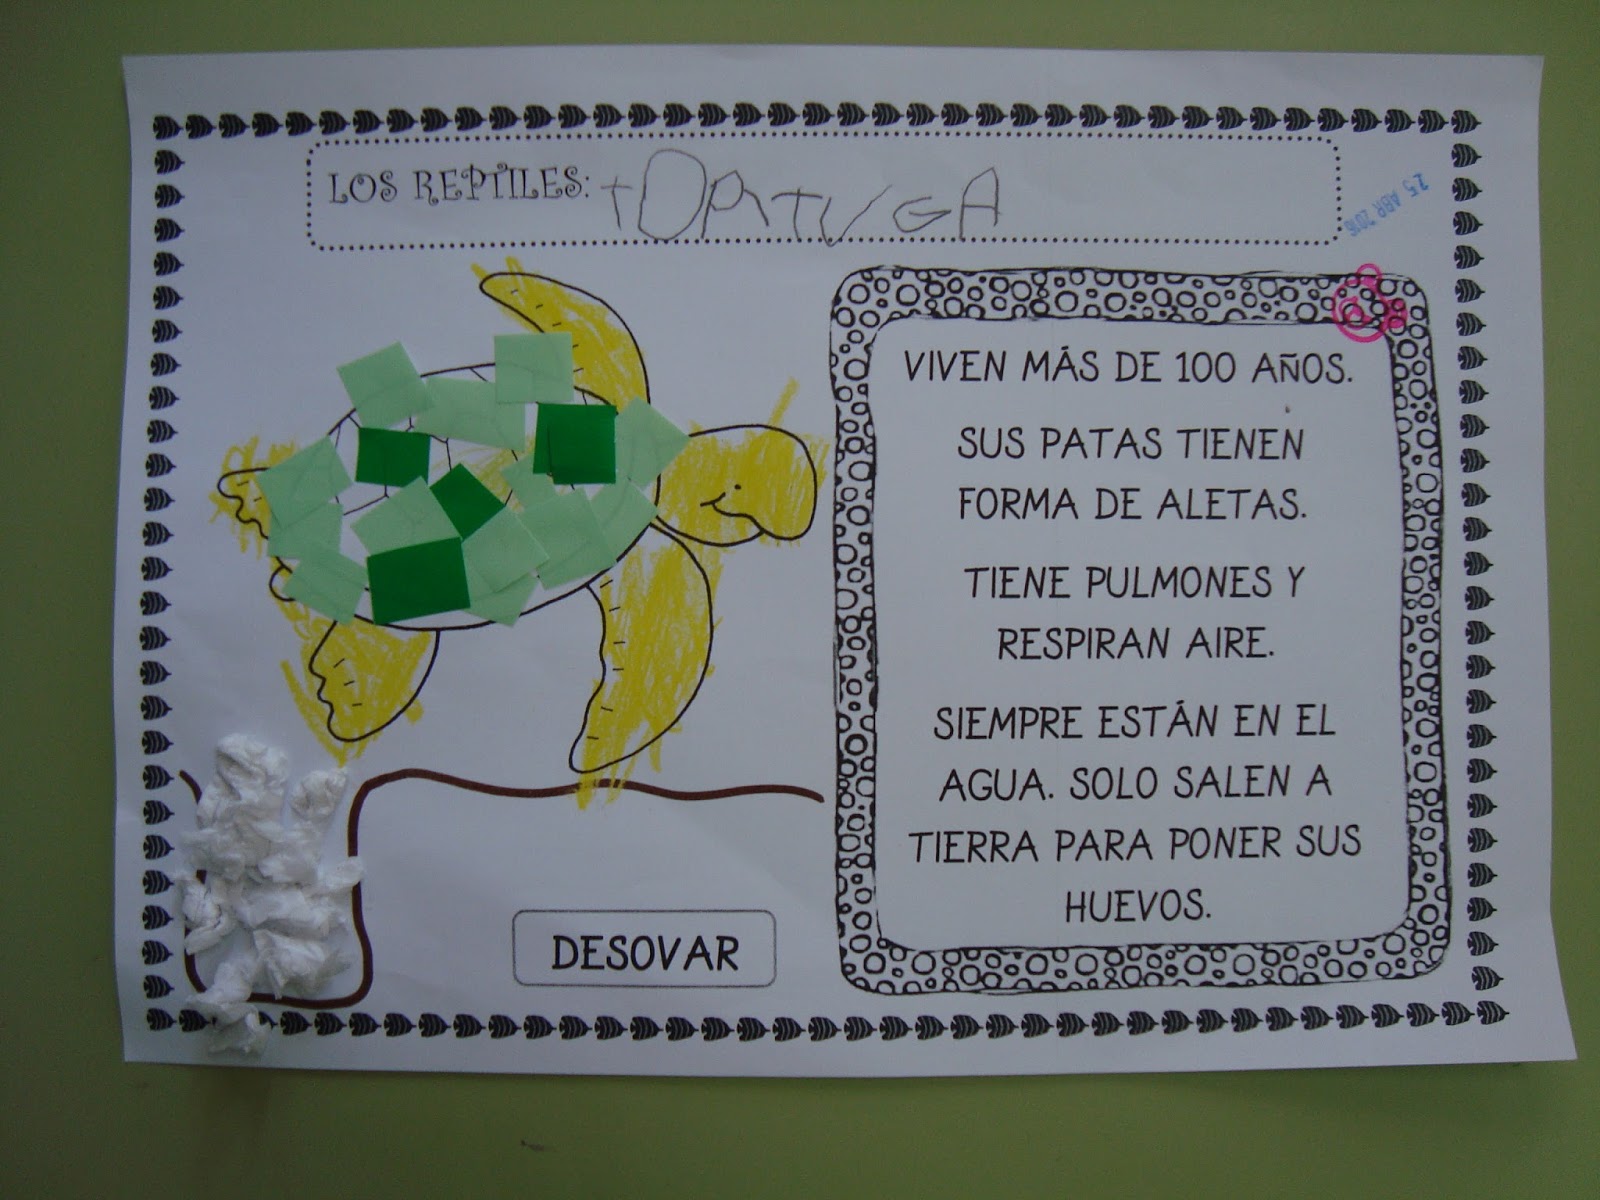 LOS REPTILES: tORTUGA
25 ABR 2016
VIVEN MÁS DE 100 AÑOS.
SUS PATAS TIENEN
FORMA DE ALETAS.
TIENE PULMONES Y
RESPIRAN AIRE.
SIEMPRE ESTÁN EN EL
AGUA. SOLO SALEN A
TIERRA PARA PONER SUS
HUEVOS.
DESOVAR